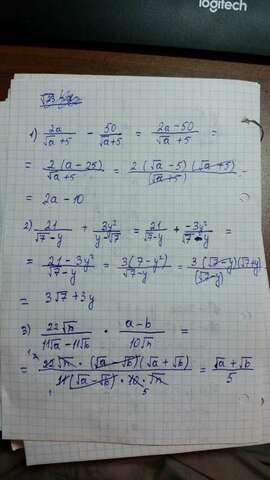 logitech
1) 2a/(√a +5) - 50/(√a+5) = (2a-50)/(√a +5) =
= 2(a-25)/(√a+5) = 2(√a-5)(√a+5)/(√a+5) =
= 2a-10
2) 21/(√7-y) + 3y²/(y-√7) = 21/(√7-y) + -3y²/(√7-y) =
= (21-3y²)/(√7-y) = 3(7-y²)/(√7-y) = 3(√7-y)(√7+y)/(√7-y)
= 3√7+3y
3) 22√n/(11√a-11√b) · (a-b)/(10√n) =
= 22√n·(√a-√b)(√a+√b)/(11(√a-√b)·10·√n) = (√a+√b)/5